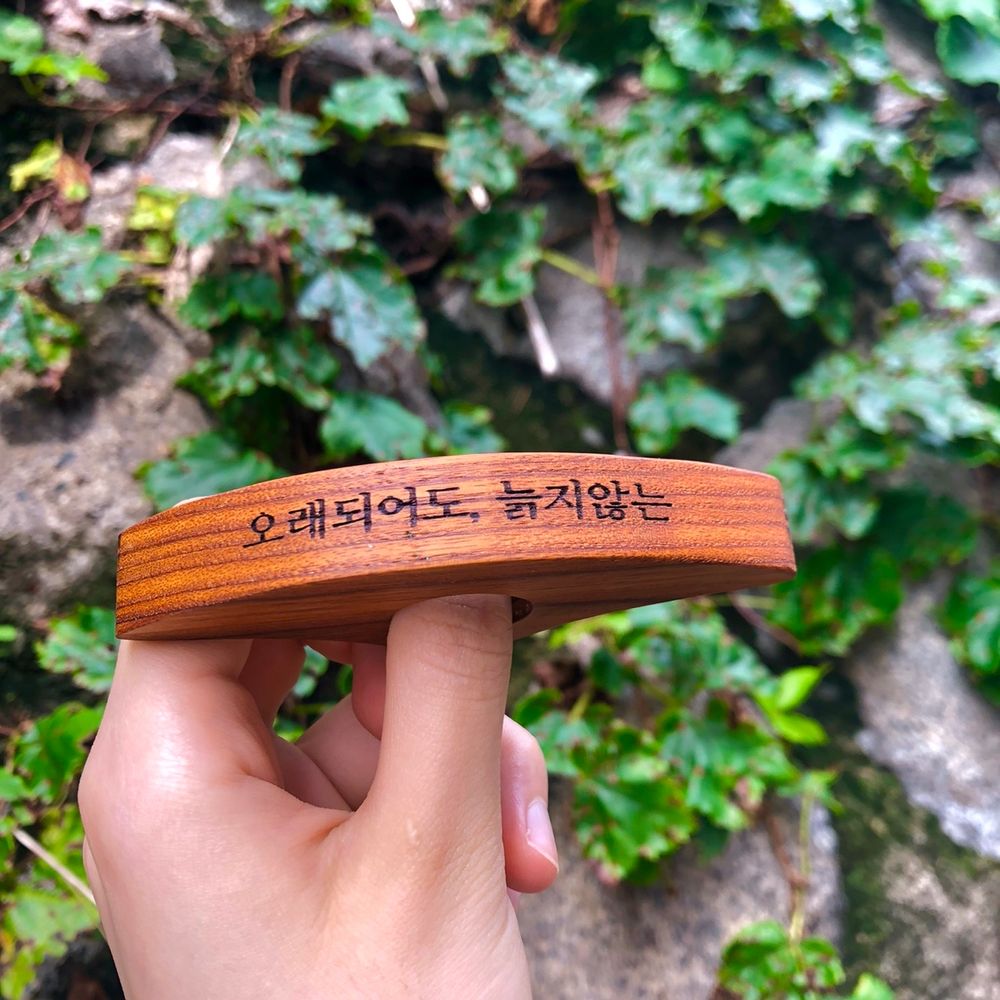 오래되어도, 늙지않는